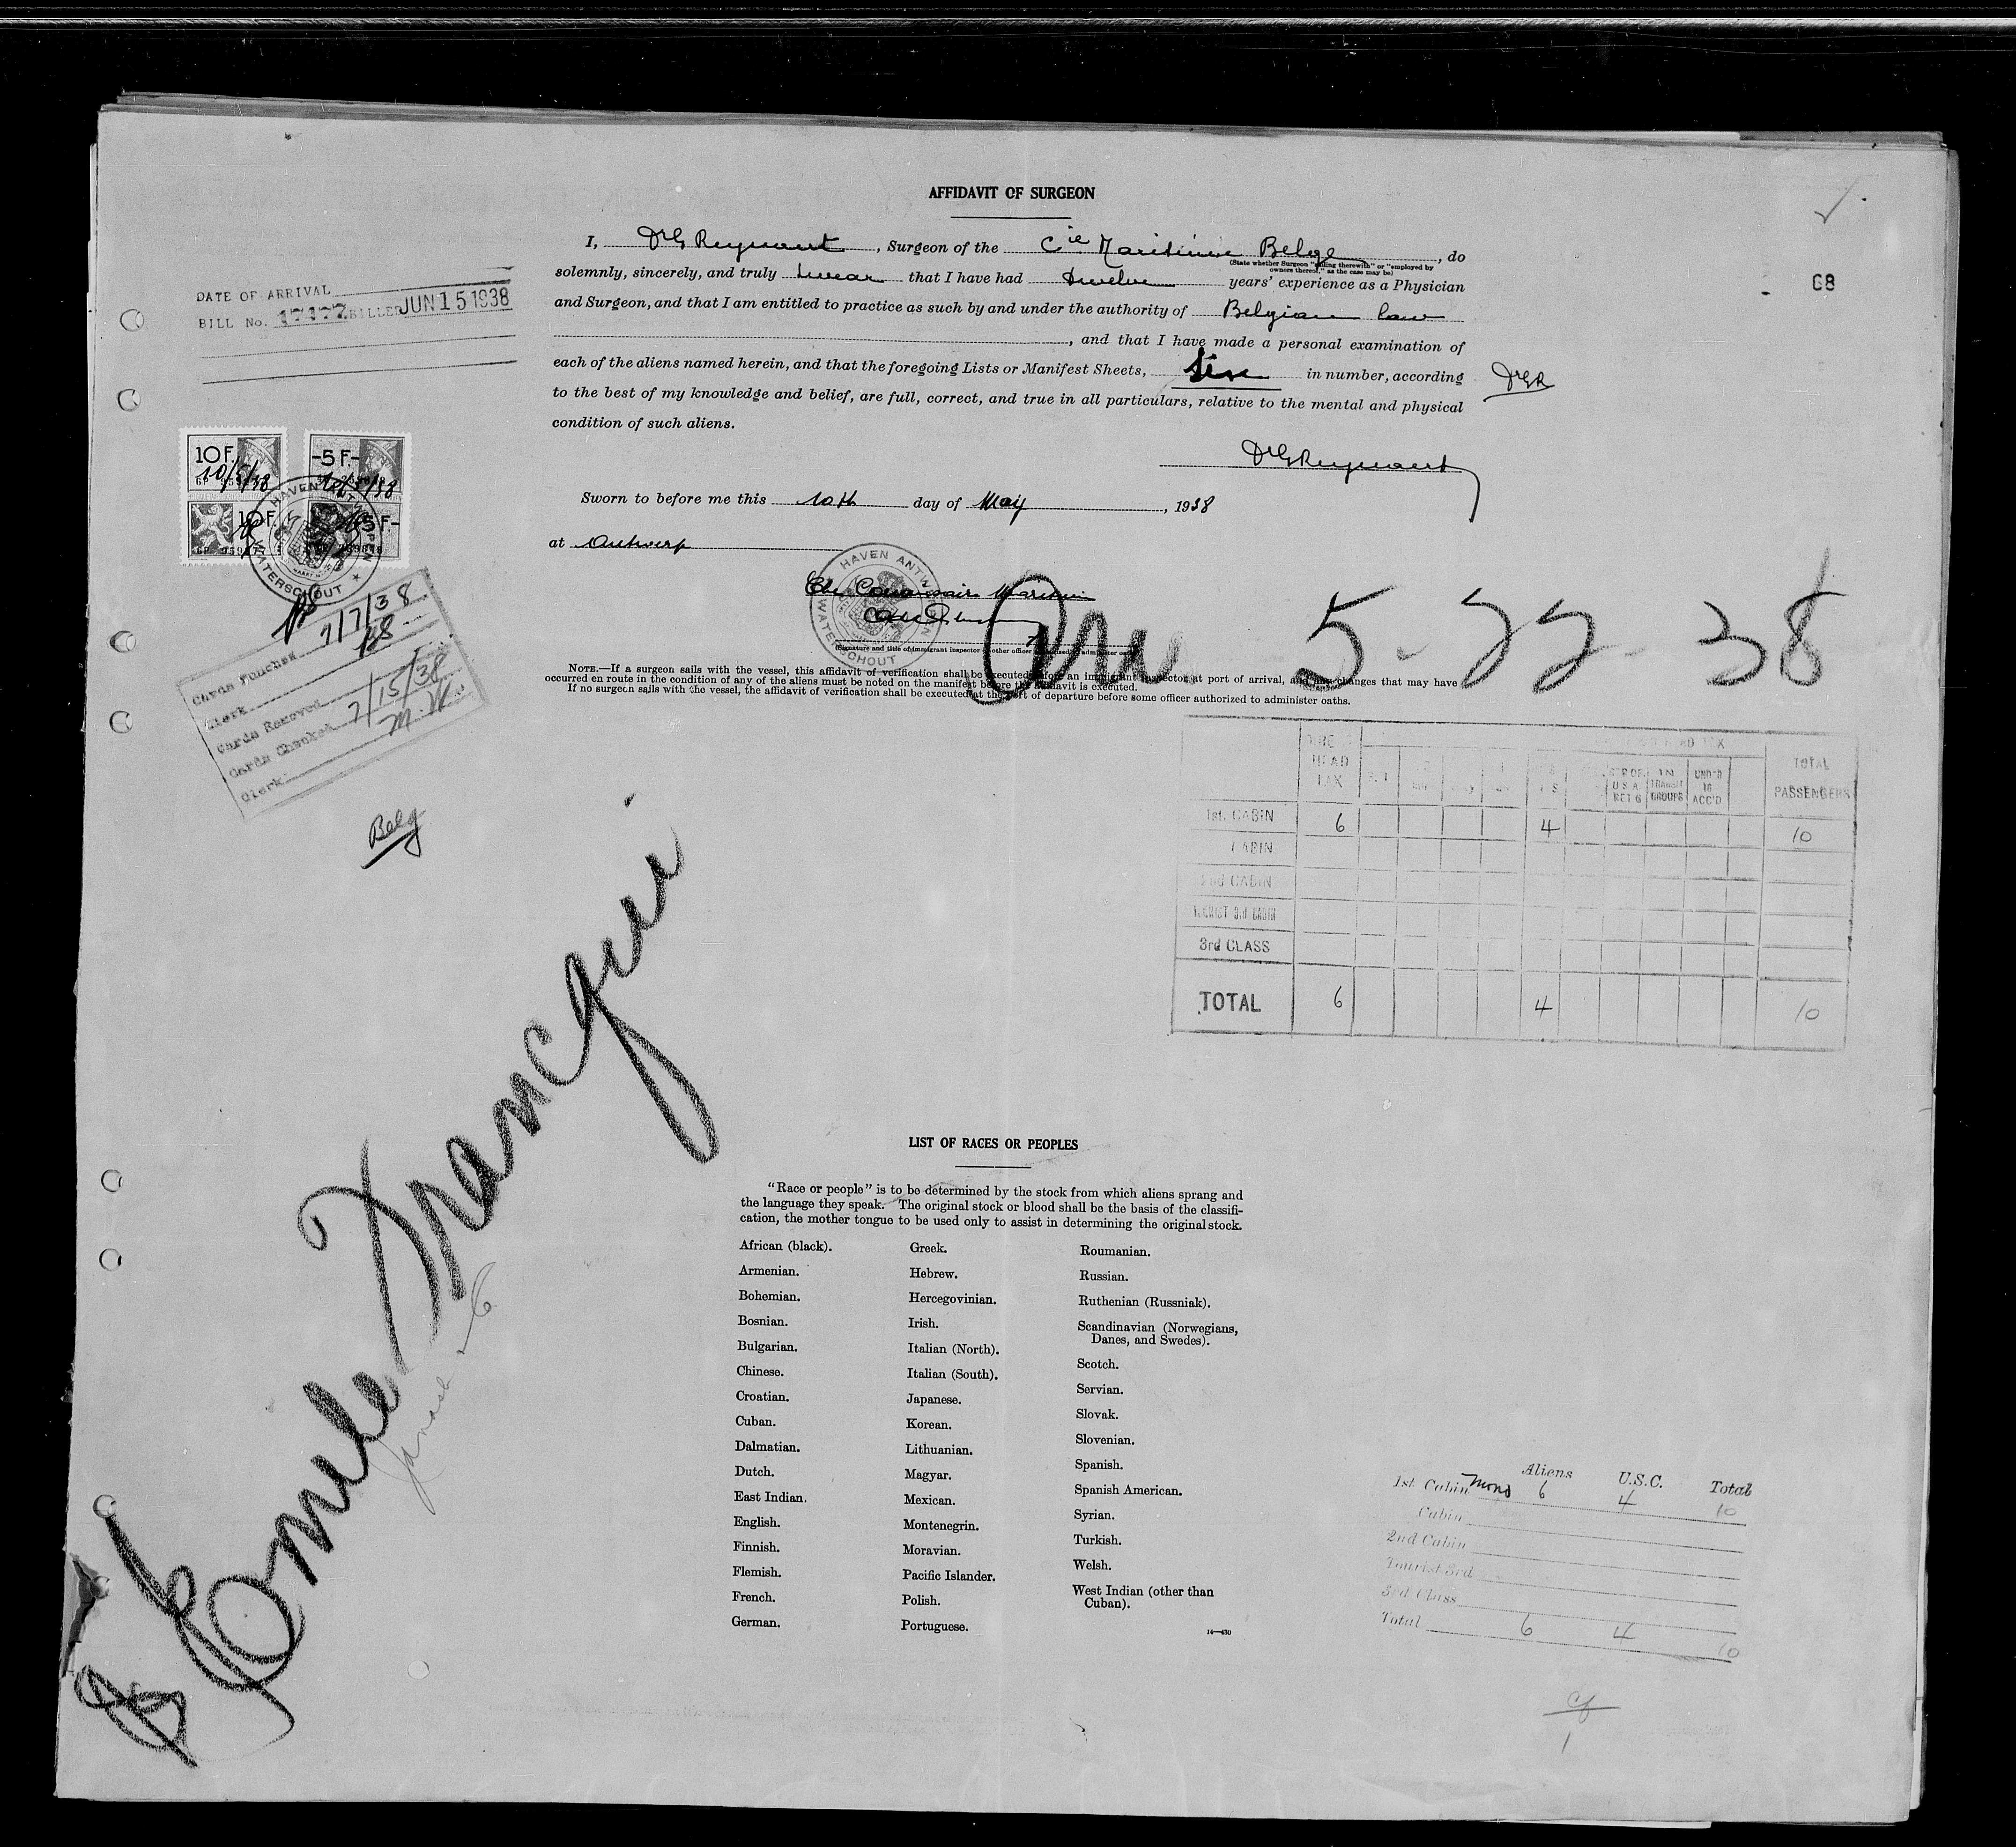 AFFIDAVIT OF SURGEON
I, Dr G Reynaert, Surgeon of the Cie Maritime Belge, do
(State whether Surgeon "sailing therewith" or "employed by
owners thereof," as the case may be)
solemnly, sincerely, and truly swear that I have had twelve years' experience as a Physician
and Surgeon, and that I am entitled to practice as such by and under the authority of Belgian law
, and that I have made a personal examination of
each of the aliens named herein, and that the foregoing Lists or Manifest Sheets, in number, according
to the best of my knowledge and belief, are full, correct, and true in all particulars, relative to the mental and physical
condition of such aliens.
Dr G Reynaert
DrGR
68
Sworn to before me this 10th day of May, 1938
at Antwerp
HAVEN ANTWERPEN
WATERSCHOUT
(Signature and title of immigrant inspector or other officer authorized to administer oaths)
Arr 5-22-38
NOTE.—If a surgeon sails with the vessel, this affidavit of verification shall be executed before an immigrant inspector at port of arrival, and any changes that may have
occurred en route in the condition of any of the aliens must be noted on the manifest before the affidavit is executed.
If no surgeon sails with the vessel, the affidavit of verification shall be executed at the port of departure before some officer authorized to administer oaths.
DATE OF ARRIVAL
BILL No. 17177 BILLED JUN 15 1938
10 F.
10/5/38
-5 F.-
10/5/38
10 F.
5 F.-
HAVEN ANTWERPEN
WATERSCHOUT
Cards Punched 7/7/38
Clerk
Cards Removed
Cards Checked 7/15/38
Clerk M.W.
Belg
HEAD TAX
TOTAL PASSENGERS
IN TRANSIT GROUPS
UND'R 16 ACC'D
1st. CABIN 6 4 10
CABIN
2nd CABIN
TOURIST 3rd CABIN
3rd CLASS
TOTAL 6 4 10
Emile Francqui
LIST OF RACES OR PEOPLES
"Race or people" is to be determined by the stock from which aliens sprang and
the language they speak. The original stock or blood shall be the basis of the classifi-
cation, the mother tongue to be used only to assist in determining the original stock.
African (black).
Armenian.
Bohemian.
Bosnian.
Bulgarian.
Chinese.
Croatian.
Cuban.
Dalmatian.
Dutch.
East Indian.
English.
Finnish.
Flemish.
French.
German.
Greek.
Hebrew.
Hercegovinian.
Irish.
Italian (North).
Italian (South).
Japanese.
Korean.
Lithuanian.
Magyar.
Mexican.
Montenegrin.
Moravian.
Pacific Islander.
Polish.
Portuguese.
Roumanian.
Russian.
Ruthenian (Russniak).
Scandinavian (Norwegians,
Danes, and Swedes).
Scotch.
Servian.
Slovak.
Slovenian.
Spanish.
Spanish American.
Syrian.
Turkish.
Welsh.
West Indian (other than
Cuban).
14—430
Aliens U.S.C. Total
1st Cabin 6 4 10
Cabin
2nd Cabin
Tourist 3rd
3rd Class
Total 6 4 10